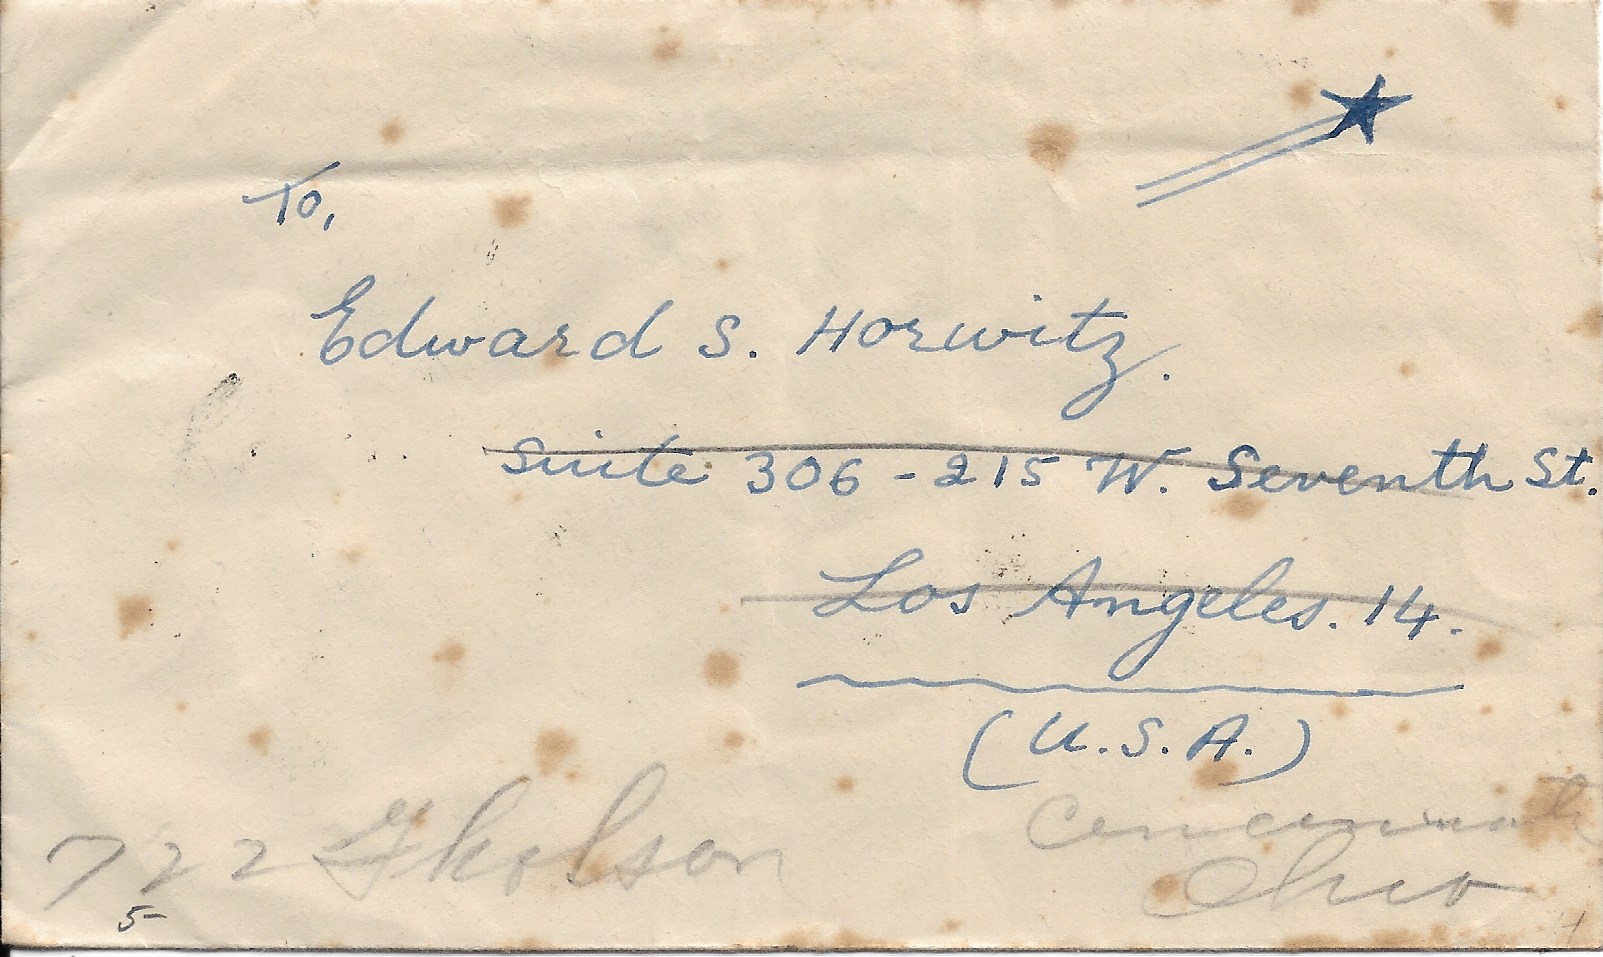 To,
Edward S. Horwitz.
Suite 306 - 215 W. Seventh St.
Los Angeles. 14.
(U.S.A.)
722 Gholson
Cincinnati
Ohio
5